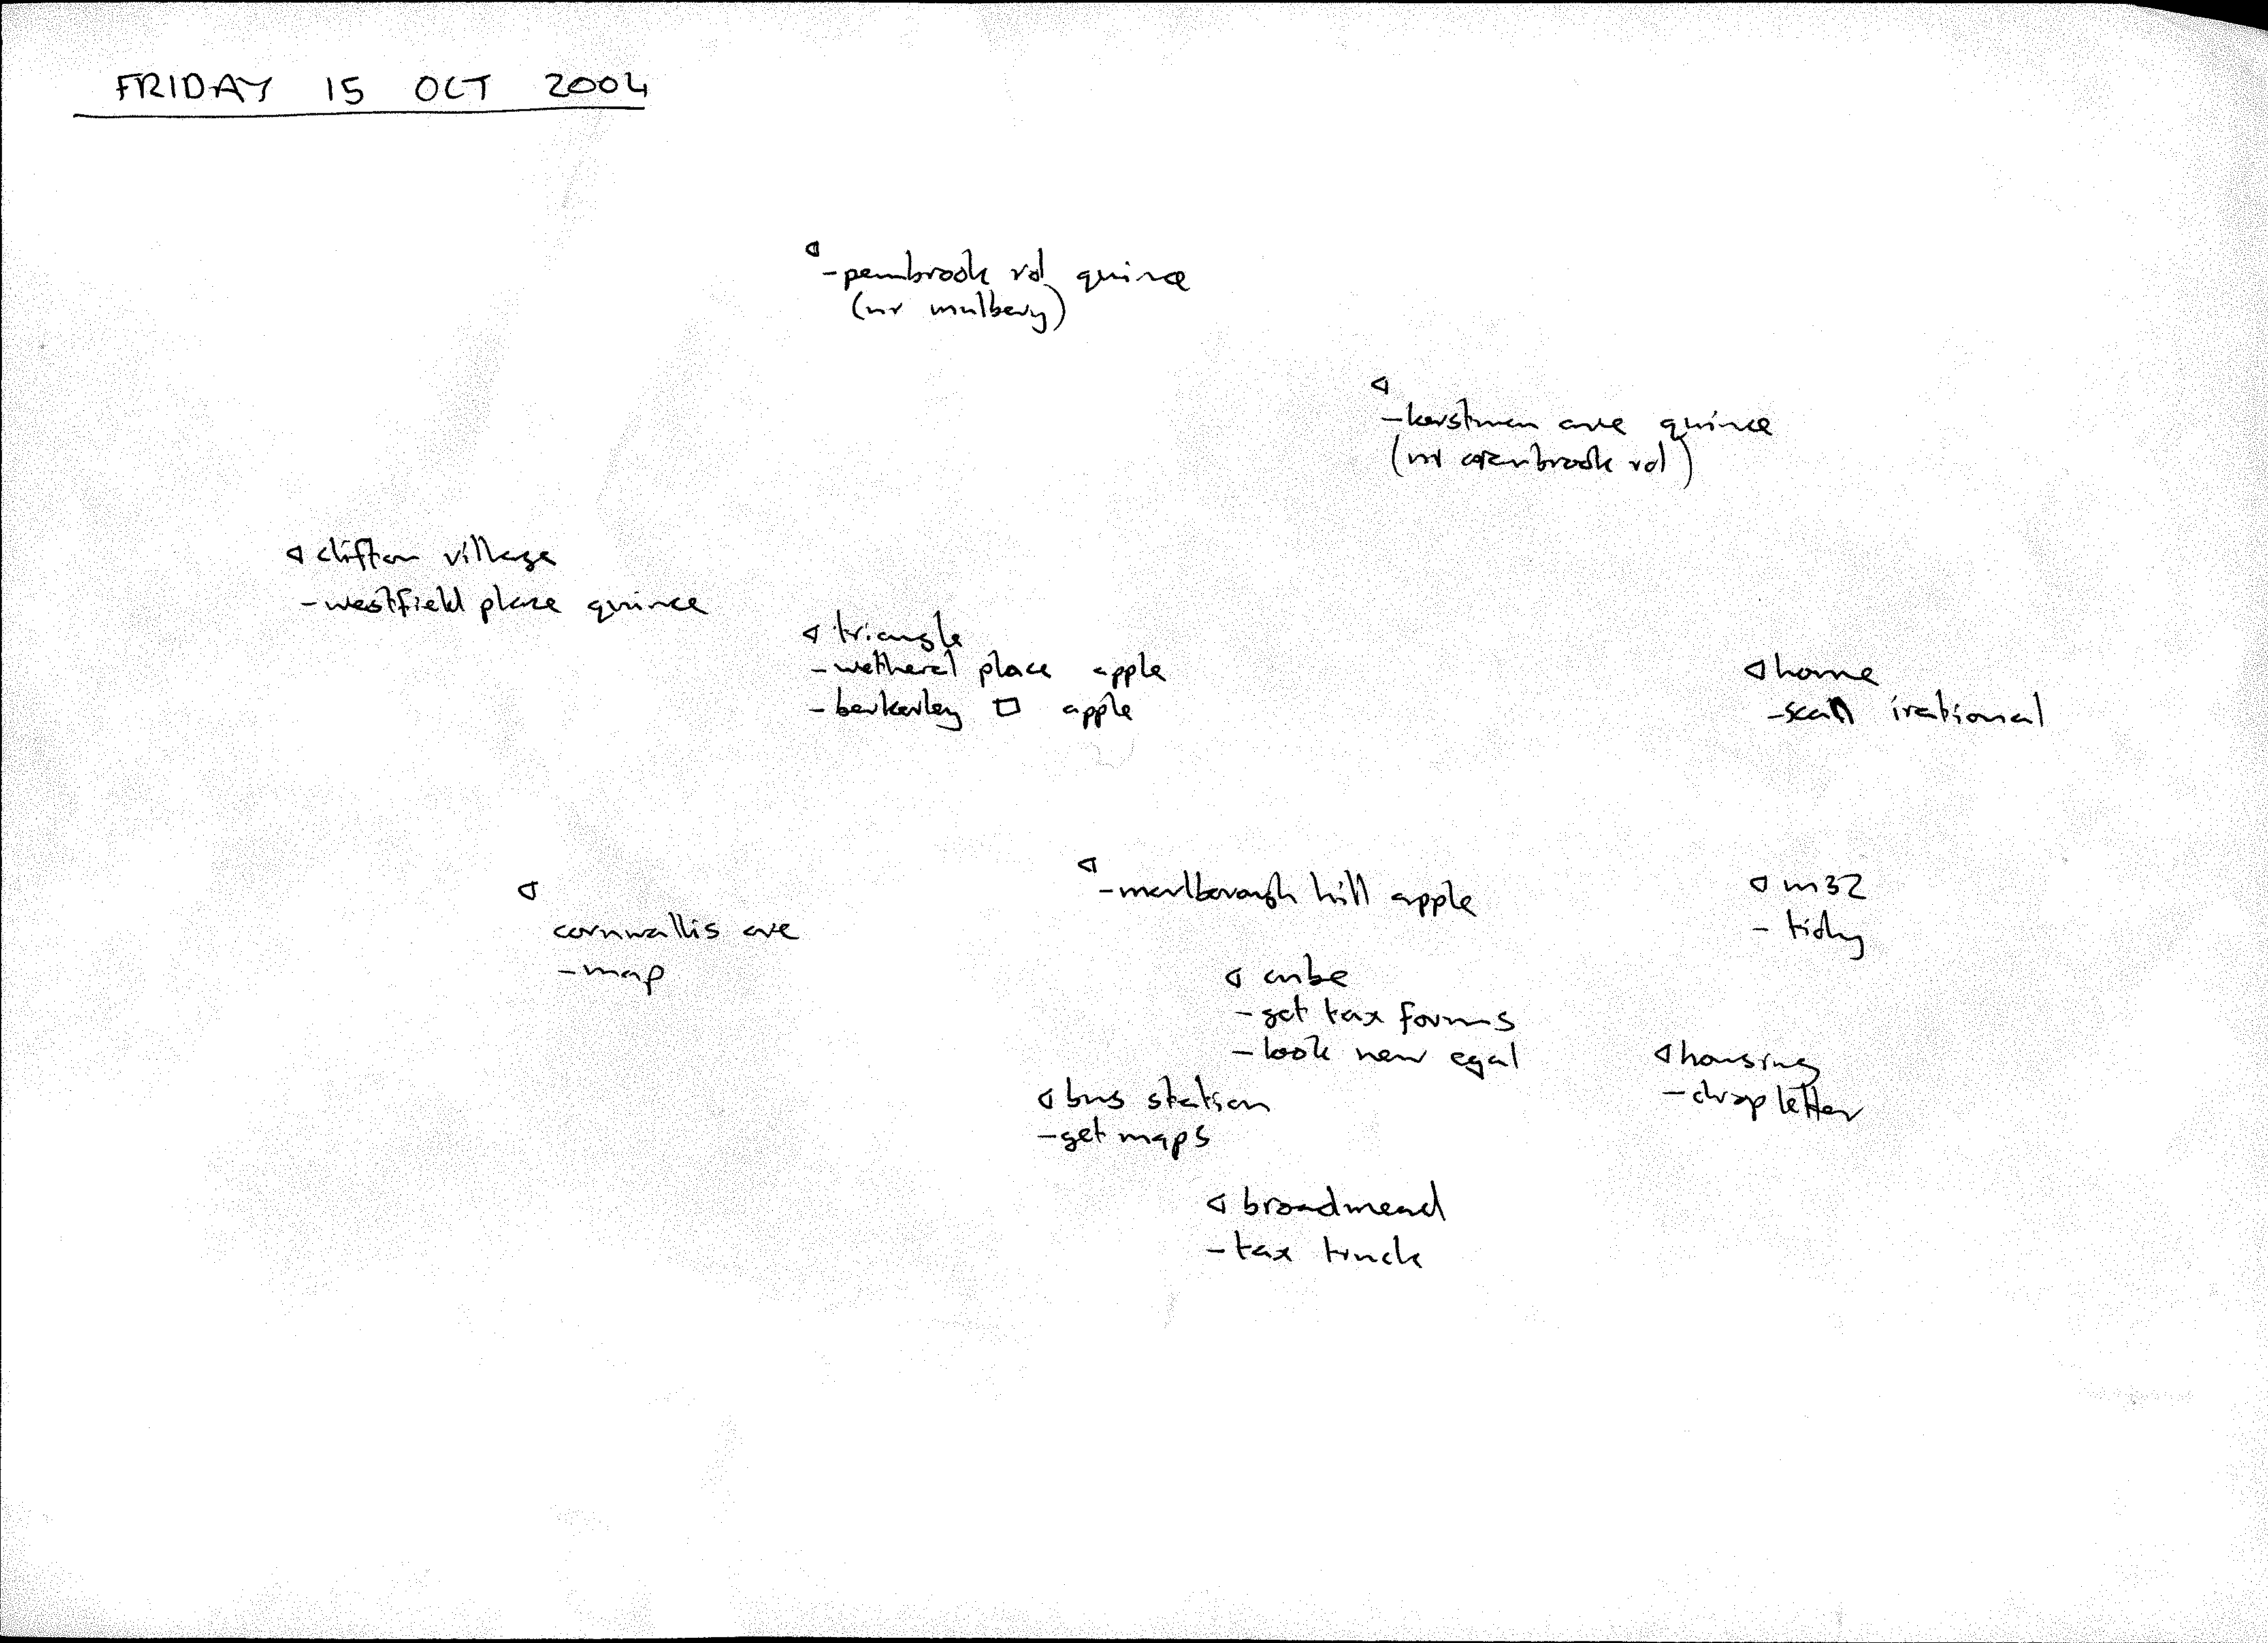 FRIDAY 15 OCT 2004
- pembrook rd quince
(nr mulbery)
- kerstmen ave quince
(nr carenbrook rd)
clifton village
- westfield place quince
triangle
- wetheral place apple
- berkerley □ apple
home
- scan irational
- marlborough hill apple
m32
- tidy
cornwallis ave
- map
cube
- get tax forms
- look new egal
housing
- drop letter
bus station
- get maps
broadmead
- tax truck